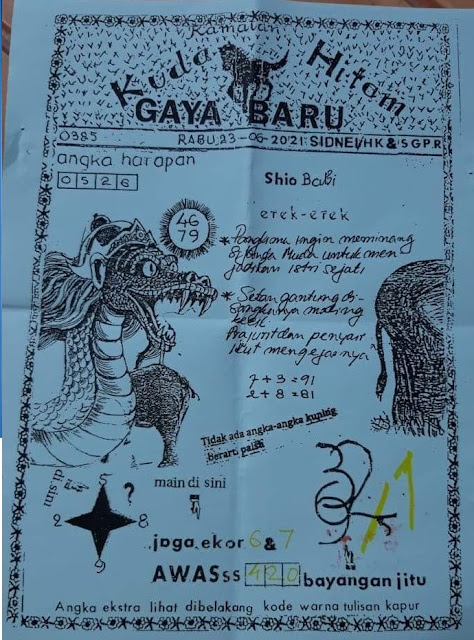 Ramalan
Kuda Hitam
GAYA BARU
0385 RABU,23-06-2021 SIDNEI/HK & SGPR
angka harapan
0 5 2 6
Shio Babi
erek-erek
46
79
* Panglima ingin meminang
Muda untuk men
jadikan istri sejati
* Setan gantung di-
maling
kecil
Prajurit dan penyair
ikut mengejarnya
7 + 3 = 91
2 + 8 = 81
Tidak ada angka-angka kuning
berarti palsu
di sini
main di sini
5
?
2 8
9
1
jaga ekor 6 & 7
AWASss 4 2 0 bayangan jitu
Angka ekstra lihat dibelakang kode warna tulisan kapur